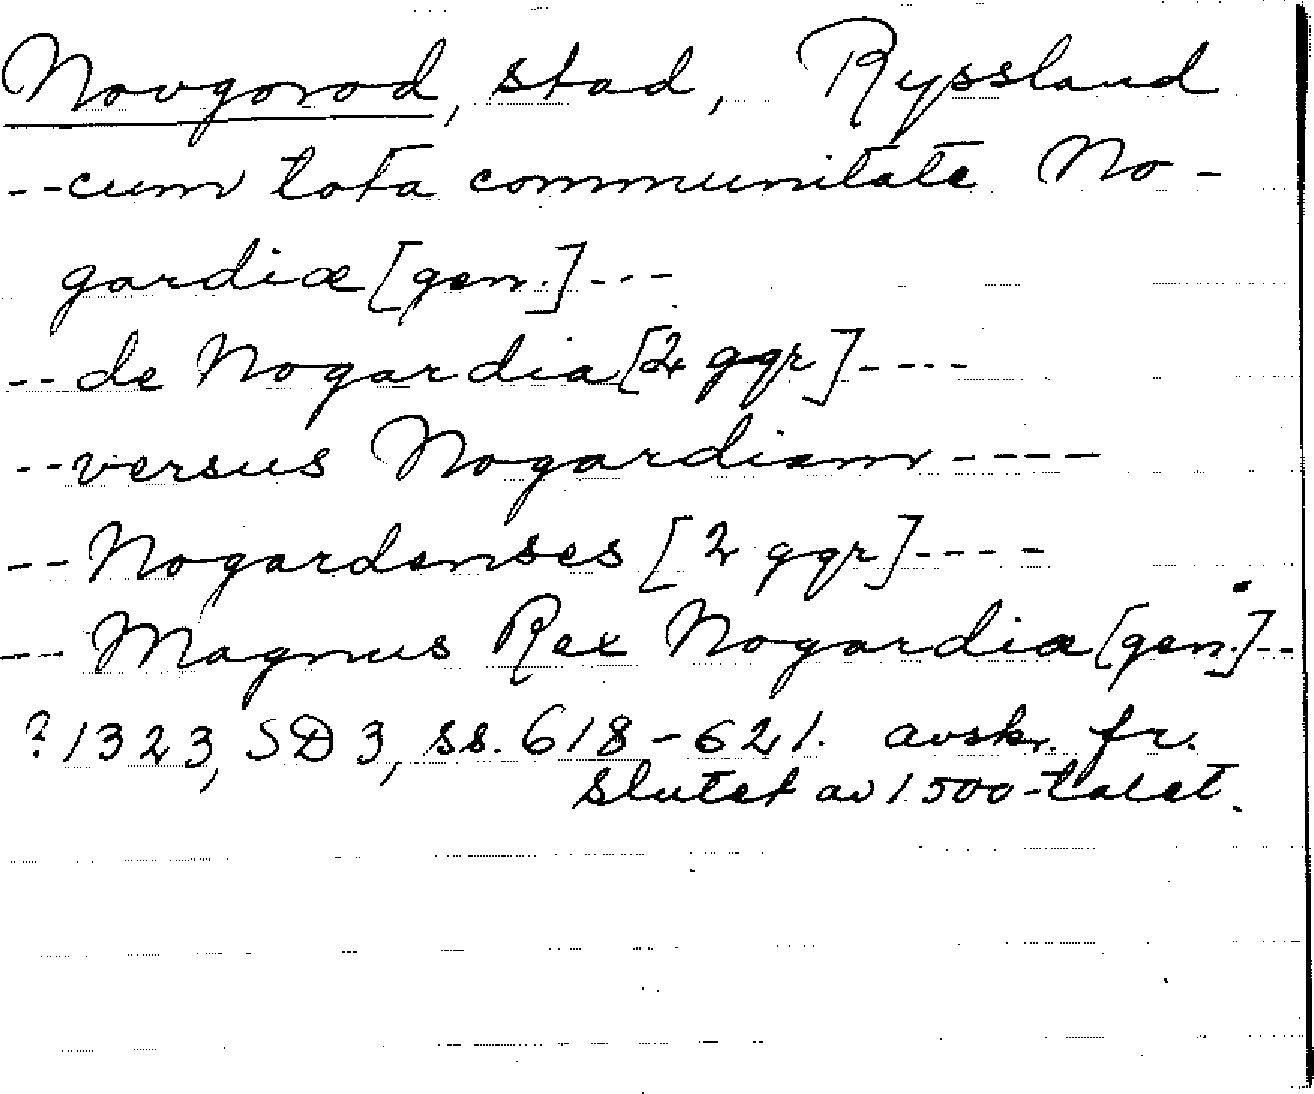 Novgorod, stad, Ryssland
--cum tota communitate No-
gardiæ [gen.]---
--de Nogardia [2 ggr]----
--versus Nogardiam----
--Nogardenses [2 ggr]----
--Magnus Rex Nogardiæ [gen.]--
?1323, SD 3, ss. 618-621. avskr. fr.
slutet av 1500-talet.